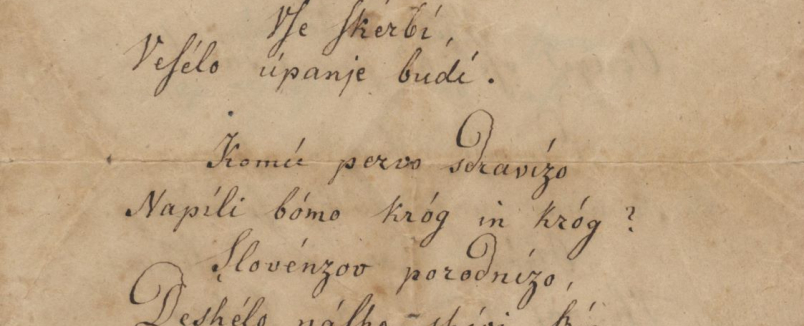 Vſe ſkerbí,
Veſélo úpanje budí.
Komú pervo sdravízo
Napíli bómo króg in króg ?
Slovénzov porodnízo,
Deshélo náſho shívi